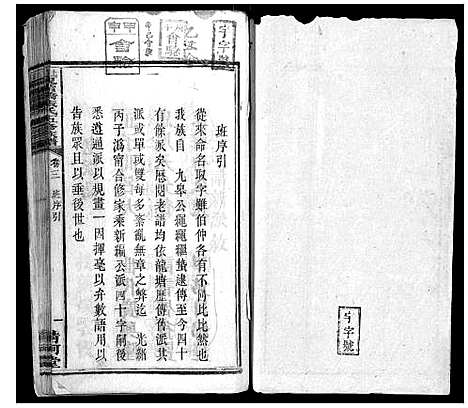 宁字號
班序引
從來命名取字雖伯仲各有不同比比然也
我族自 九皋公繩繩繼蟄遠傳至今四十
有餘派矣歷閱老譜均依龍塘歷傳舊派其
派或單或雙每多紊亂無章之弊迄 光緒
丙子溈甯合修家乘新編公派四十字嗣後
悉遵通派以規畫一因揮毫以弁數語用以
告族眾且以垂後世也
卷三 班序引
一
清河堂
宁字號